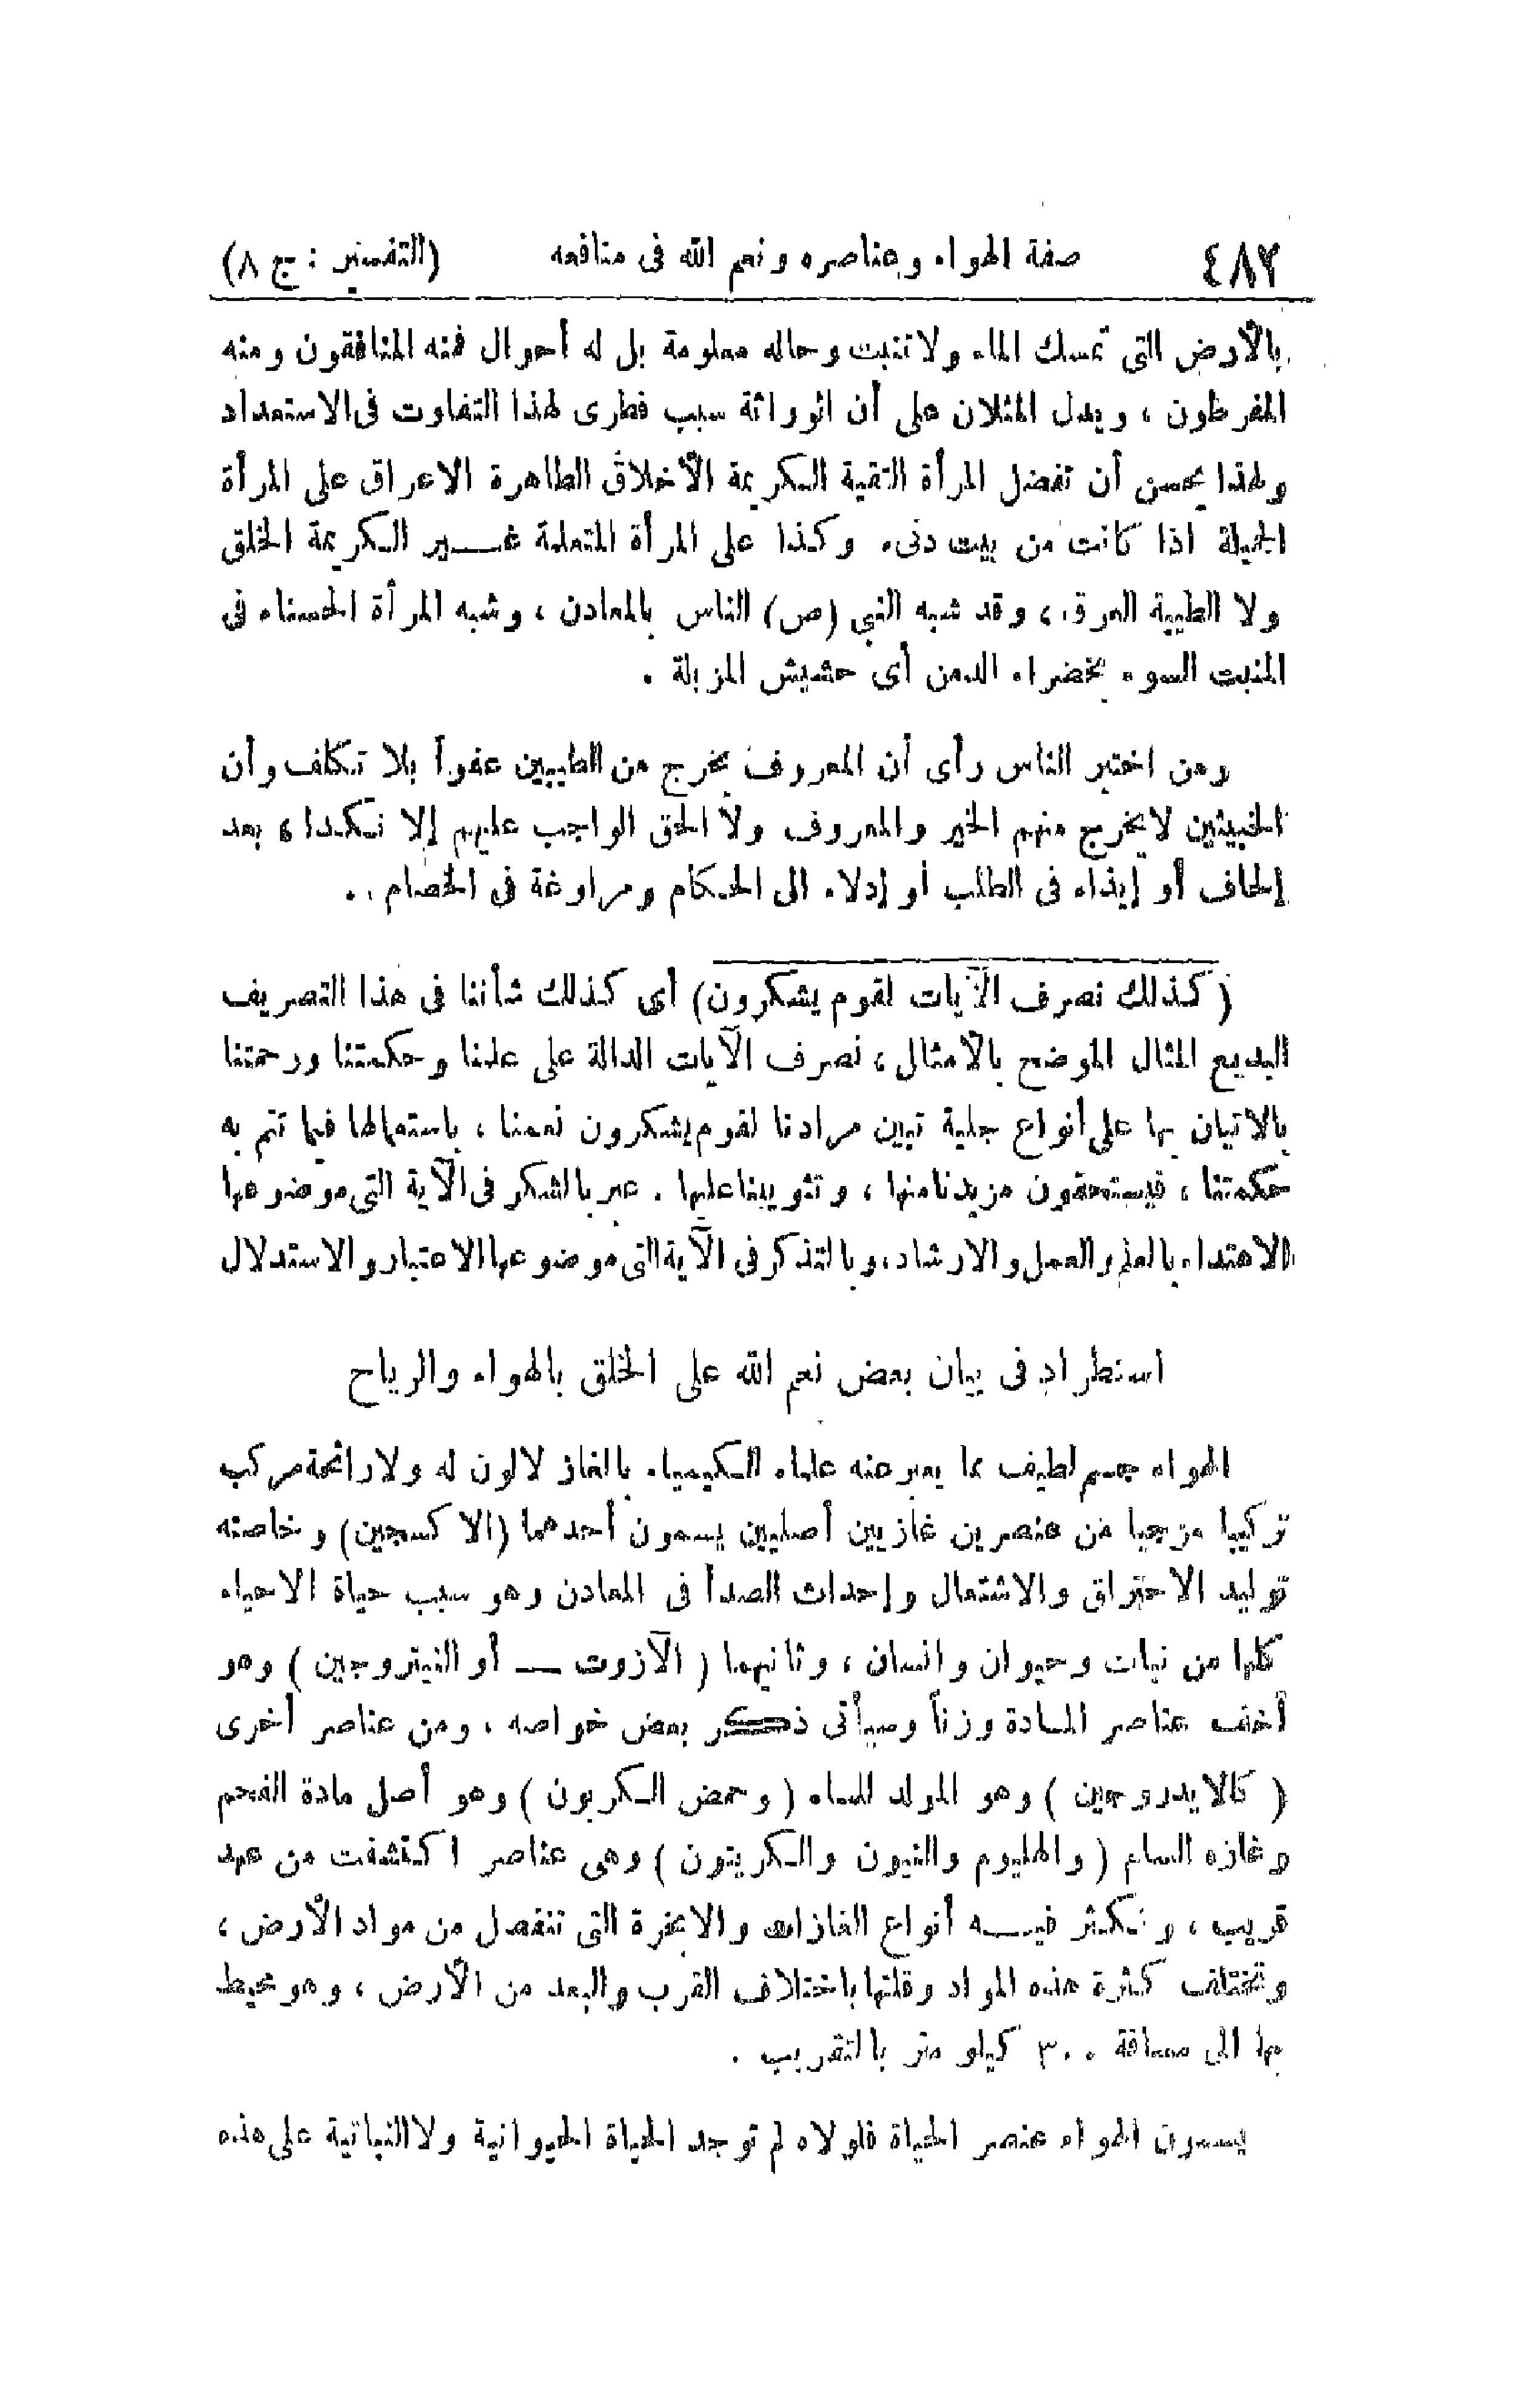 ٤٨٢ صفة الهواء وعناصره ونعم الله فى منافعه (التفسير : ج ٨)
بالأرض التى تمسك الماء ولا تنبت وحاله معلومة بل له أحوال فمنه المنافقون ومنه
المفرطون ، ويدل المثلان على أن الوراثة سبب فطرى لهذا التفاوت فى الاستعداد
ولهذا يحسن أن تفضل المرأة التقية الكريمة الأخلاق الطاهرة الاعراق على المرأة
الجميلة اذا كانت من بيت دنىء وكذا على المرأة المتعلمة غير الكريمة الخلق
ولا الطيبة العرق ، وقد شبه النبي (ص) الناس بالمعادن ، وشبه المرأة الحسناء فى
المنبت السوء بخضراء الدمن أى حشيش المزبلة .
ومن اختبر الناس رأى أن المعروف يخرج من الطيبين عفواً بلا تكلف وأن
الخبيثين لا يخرج منهم الخير والمعروف ولا الحق الواجب عليهم إلا نكدا ، بعد
إلحاف أو إيذاء فى الطلب أو إدلاء الى الحكام ومراوغة فى الخصام . .
( كذلك نصرف الآيات لقوم يشكرون) أى كذلك شأننا فى هذا التصريف
البديع المثال الموضح بالأمثال ، نصرف الآيات الدالة على علمنا وحكمتنا ورحمتنا
بالاتيان بها على أنواع جلية تبين مرادنا لقوم يشكرون نعمنا ، باستعمالها فيما تتم به
حكمتنا ، فيستحقون مزيدنا منها ، وتثويبنا عليها . عبر بالشكر فى الآية التى موضوعها
الاهتداء بالعلم والعمل والارشاد ، وبالتذكر فى الآية التى موضوعها الاعتبار والاستدلال
استطراد فى بيان بعض نعم الله على الخلق بالهواء والرياح
الهواء جسم لطيف مما يعبر عنه علماء الكيمياء بالغاز لا لون له ولا رائحة مركب
تركيبا مزجيا من عنصرين غازيين أصليين يسمون أحدهما (الاكسجين) وخاصته
توليد الاحتراق والاشتعال وإحداث الصدأ فى المعادن وهو سبب حياة الاحياء
كلها من نبات وحيوان وانسان ، وثانيهما ( الآزوت — أو النيتروجين ) وهو
أخف عناصر المادة وزناً وسيأتى ذكر بعض خواصه ، ومن عناصر أخرى
( كالايدروجين ) وهو المولد للماء ( وحمض الكربون ) وهو أصل مادة الفحم
وغازه السام ( والهليوم والنيون والكريتون ) وهى عناصر اكتشفت من عهد
قريب ، وتكثر فيه أنواع الغازات والابخرة التى تنفصل من مواد الأرض ،
وتختلف كثرة هذه المواد وقلتها باختلاف القرب والبعد من الأرض ، وهو محيط
بها الى مسافة ٣٠٠ كيلو متر بالتقريب .
يسمون الهواء عنصر الحياة فلولاه لم توجد الحياة الحيوانية ولا النباتية على هذه